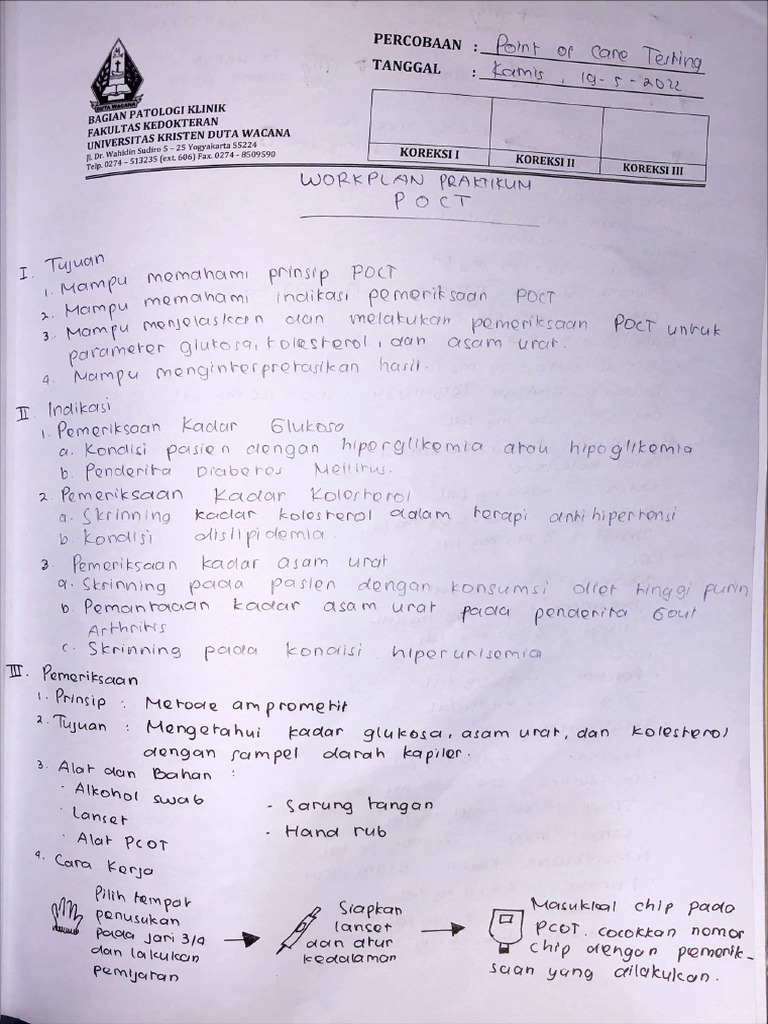 PERCOBAAN : Point of Care Testing
TANGGAL : Kamis, 19-5-2022
DUTA WACANA
BAGIAN PATOLOGI KLINIK
FAKULTAS KEDOKTERAN
UNIVERSITAS KRISTEN DUTA WACANA
Jl. Dr. Wahidin Sudiro 5 – 25 Yogyakarta 55224
Telp. 0274 – 513235 (ext. 606) Fax. 0274 - 8509590
KOREKSI I KOREKSI II KOREKSI III
WORKPLAN PRAKTIKUM
POCT
I. Tujuan
1. Mampu memahami prinsip POCT
2. Mampu memahami indikasi pemeriksaan POCT
3. Mampu menjelaskan dan melakukan pemeriksaan POCT untuk
parameter glukosa, kolesterol, dan asam urat.
4. Mampu menginterpretasikan hasil.
II. Indikasi
1. Pemeriksaan Kadar Glukosa
a. Kondisi pasien dengan hiperglikemia atau hipoglikemia
b. Penderita Diabetes Mellitus.
2. Pemeriksaan Kadar Kolesterol
a. Skrinning kadar kolesterol dalam terapi antihipertensi
b. Kondisi dislipidemia.
3. Pemeriksaan kadar asam urat
a. Skrinning pada pasien dengan konsumsi diet tinggi purin
b. Pemantauan kadar asam urat pada penderita Gout
Arthritis
c. Skrinning pada kondisi hiperurisemia
III. Pemeriksaan
1. Prinsip : Metode amprometif
2. Tujuan : Mengetahui kadar glukosa, asam urat, dan kolesterol
dengan sampel darah kapiler.
3. Alat dan Bahan :
· Alkohol swab - Sarung tangan
· Lanset - Hand rub
· Alat PCOT
4. Cara Kerja
Pilih tempat
penusukan
pada jari 3/4
dan lakukan
pemijatan
Siapkan
lanset
dan atur
kedalaman
Masukkal chip pada
PCOT. cocokkan nomor
chip dengan pemerik-
saan yang dilakukan.